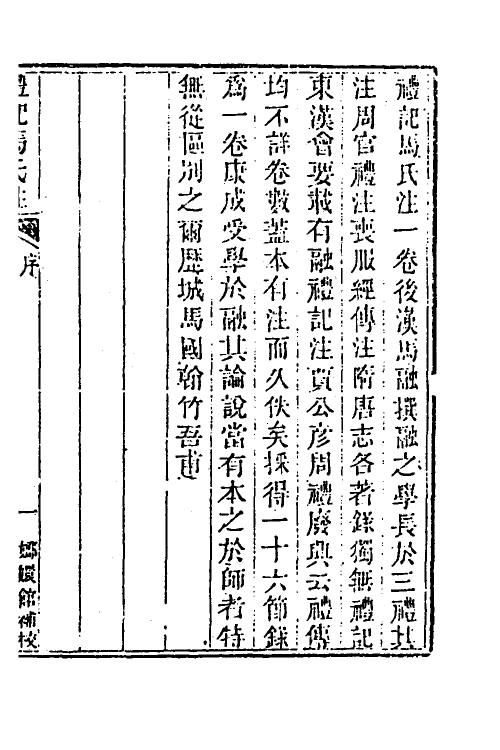 禮記馬氏注一卷後漢馬融撰融之學長於三禮其
注周官禮注喪服經傳注隋唐志各著錄獨無禮記
東漢會要載有融禮記注賈公彦周禮廢興云禮傳
均不詳卷數蓋本有注而久佚矣採得一十六節錄
爲一卷康成受學於融其論說當有本之於師者特
無從區别之爾歷城馬國翰竹吾甫
禮記馬氏注
序
一
嫏嬛館補校